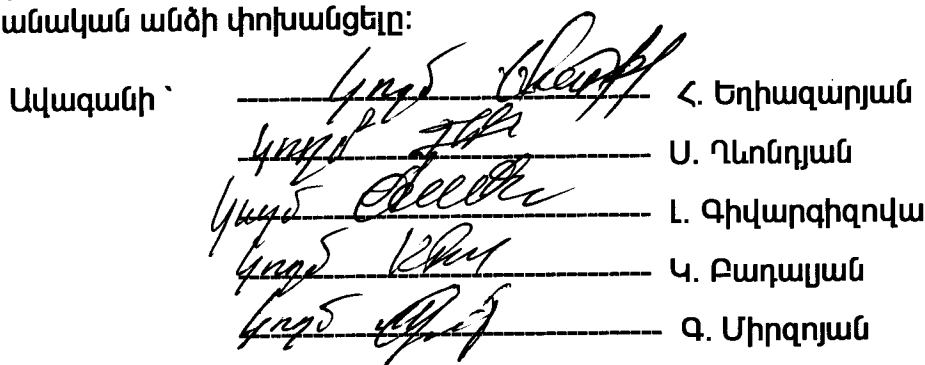 անական անձի փոխանցելը:
Ավագանի ` կողմ Հ. Եղիազարյան
կողմ Ս. Ղևոնդյան
կողմ Լ. Գիվարգիզովա
կողմ Կ. Բադալյան
կողմ Գ. Միրզոյան